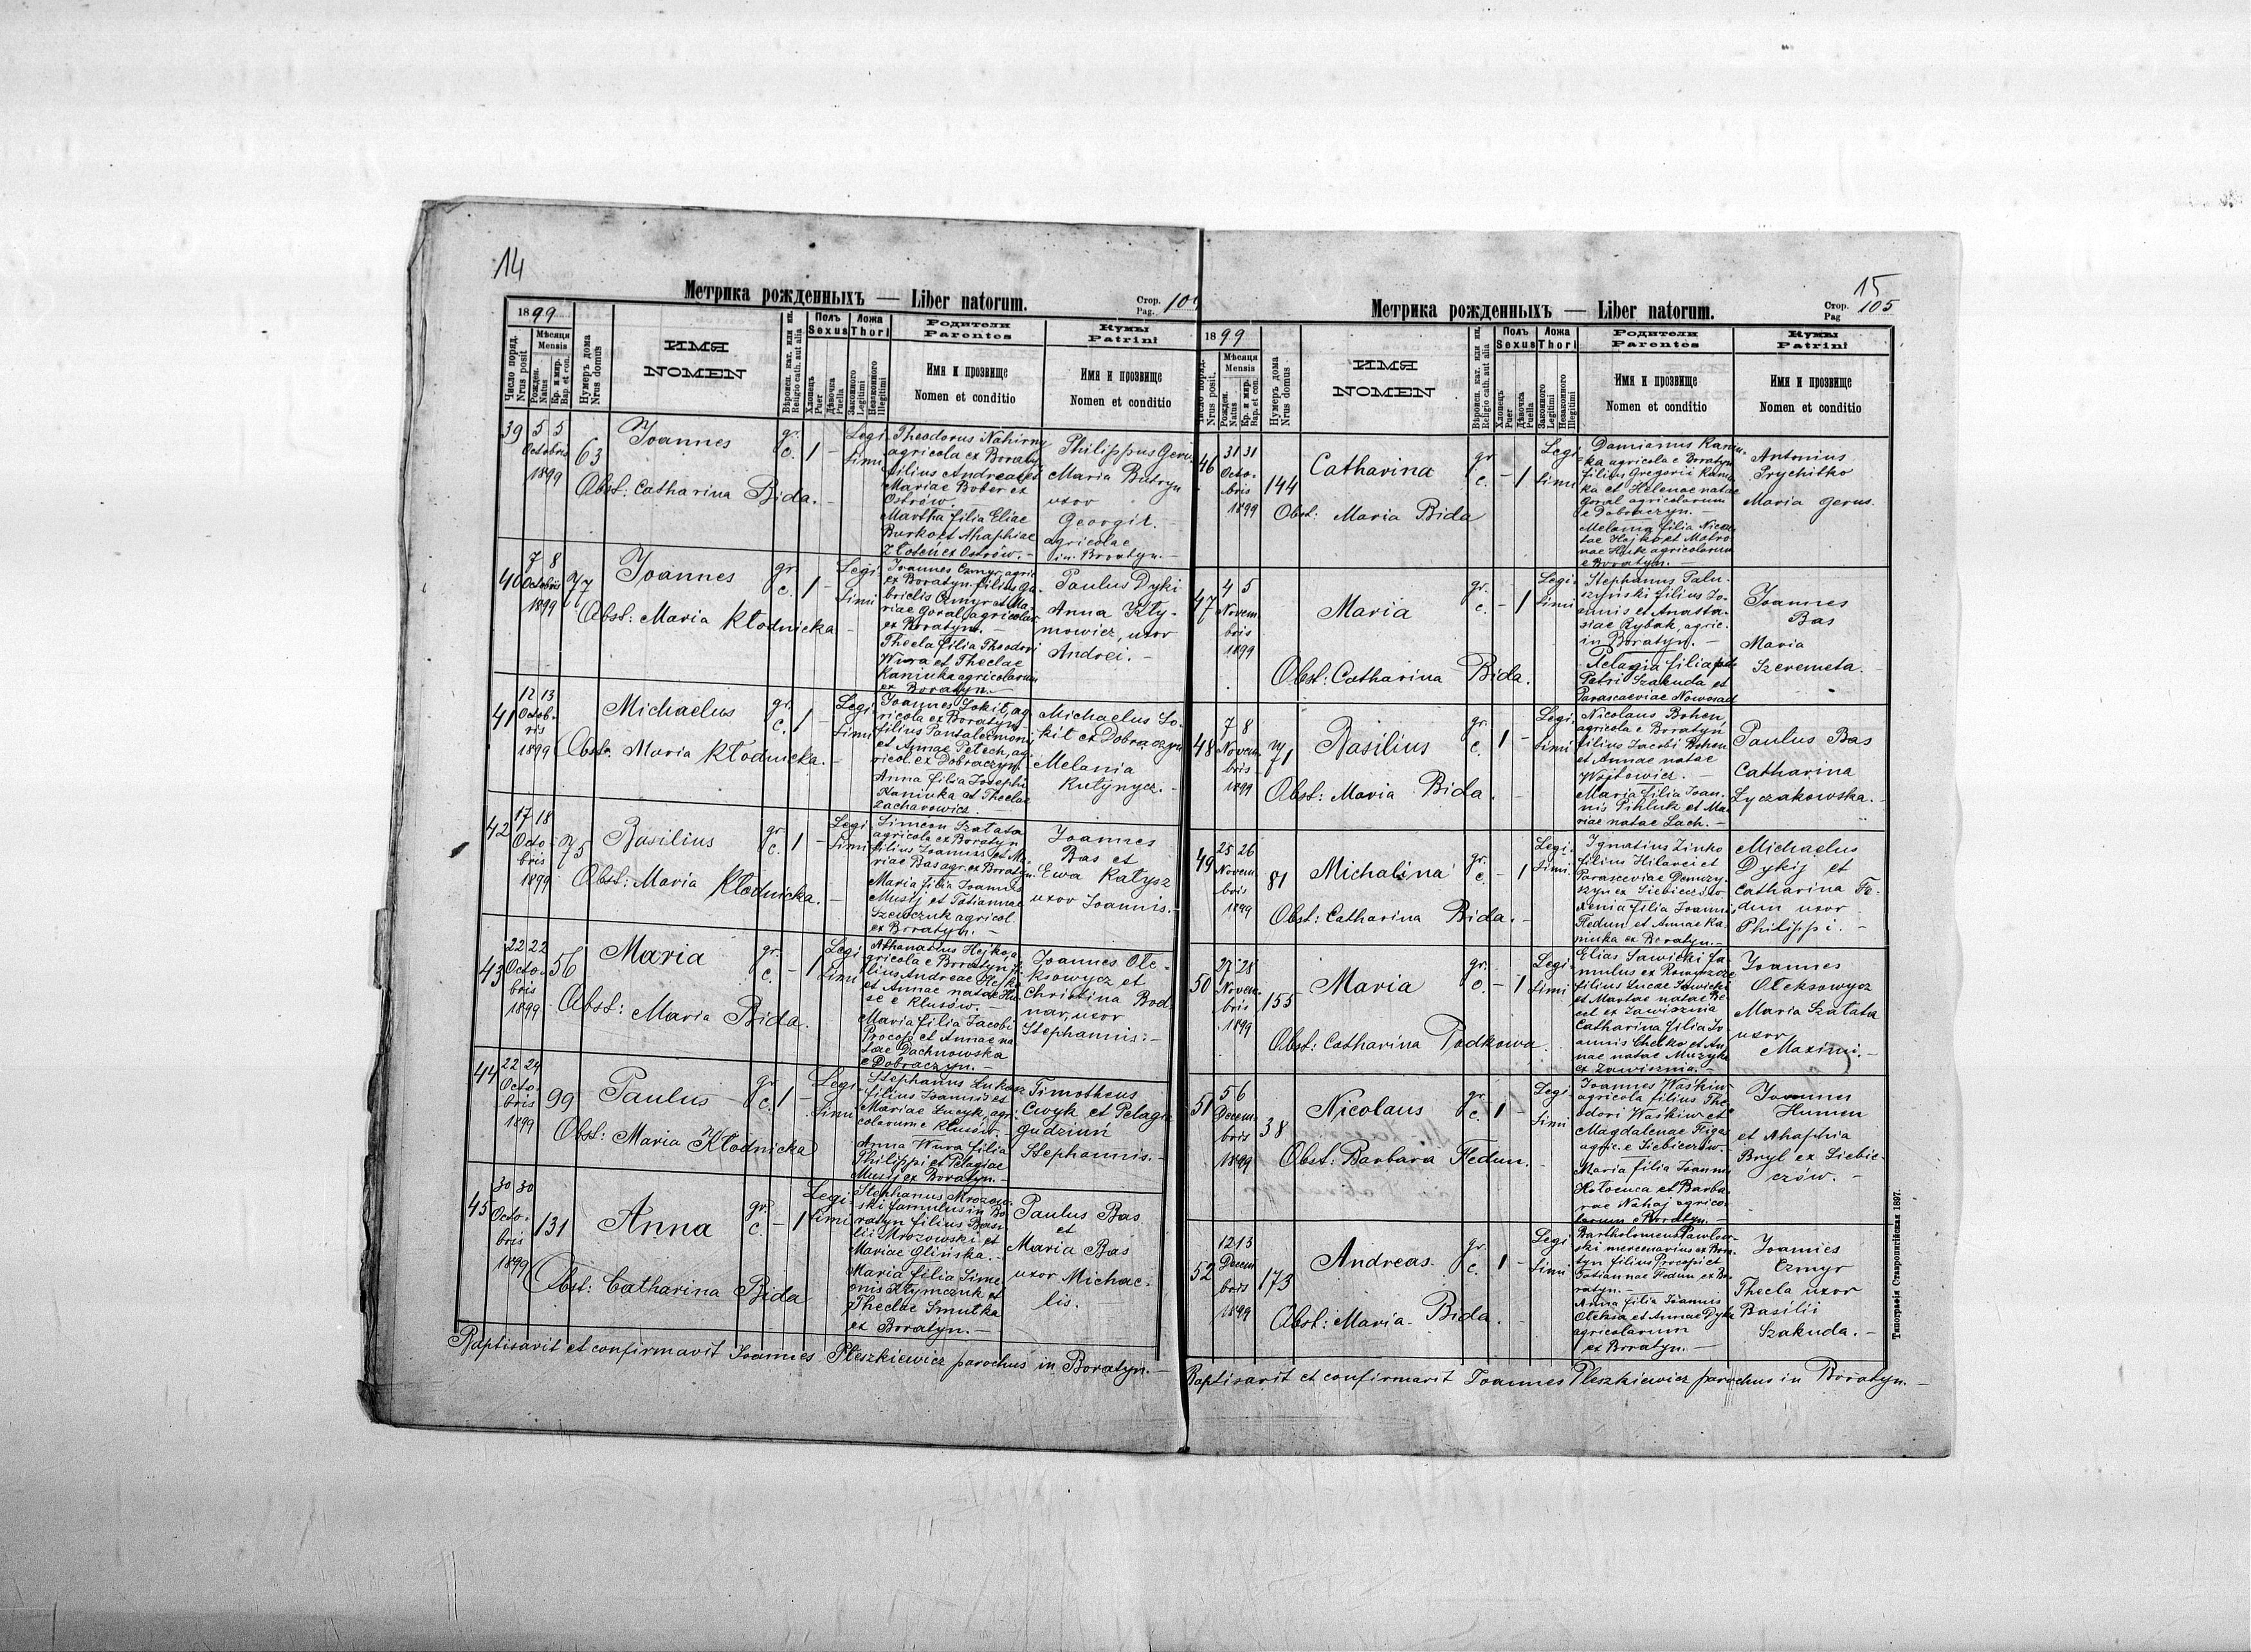 14
Метрика рожденныхъ — Liber natorum.
Стор.
Pag. 10
1899
Число поряд.
Nrus posit
Мѣсяця
Mensis
Рожден.
Natus
Кр. и мир.
Bap. et con.
Нумеръ дома
Nrus domus
ИМЯ
NOMEN
Вѣроисп. кат. или ин.
Religio cath. aut alia
Полъ
Sexus
Хлопецъ
Puer
Дѣвочка
Puella
Ложа
Thori
Законного
Legitimi
Незаконного
Illegitimi
Родители
Parentes
Имя и прозвище
Nomen et conditio
Кумы
Patrini
Имя и прозвище
Nomen et conditio
39
5 5
Octobris
1899
63
Joannes
Obst: Catharina Bida.
gr.
c.
1
-
Legi
timi
Theodorus Nahirny
agricola ex Boratyn
filius Andreae et
Mariae Bober ex
Ostrów.
Martha filia Eliae
Burko et Ahaphiae
Złoteń ex Ostrów. -
Philippus Geru
Maria Batryn
uxor
Georgii.
agricolae
in Boratyn. -
40
7 8
Octobris
1899
77
Joannes
Obst: Maria Kłodnicka
gr.
c.
1
-
Legi
timi
Joannes Czmyr, agric
ex Boratyn filius Ga
brielis Czmyr et Ma
riae Goral agricolar
ex Boratyn. -
Thecla filia Theodori
Wura et Theclae
Kaniuka agricolarum
ex Boratyn. -
Paulus Dyki
Anna Kły-
mowicz, uxor
Andrei. -
41
12 13
Octob-
ris
1899
Michaelus
Obst. Maria Kłodnicka. -
gr.
c.
1
-
Legi-
timi
Joannes Sokit, ag
ricola ex Boratyn
filius Pantaleimoni
et Annae Petech, ag
ricol. ex Dobraczyn.
Anna filia Josephi
Kaniuka et Theclae
Zacharowicz.
Michaelus So-
kit ex Dobraczyn
Melania
Kutynycz. -
42
17 18
Octo-
bris
1899
75
Basilius
Obst: Maria Kłodnicka. -
gr
c.
1
-
Legi
timi
Simeon Szałata
agricola ex Boratyn
filius Joannis et Ma
riae Bas agr. ex Boratyn
Maria filia Joannis
Musij et Tatiannae
Szewczuk agricol.
ex Boratyn. -
Joannes
Bas et
Ewa Katysz
uxor Joannis. -
43
22 22
Octo-
bris
1899
56
Maria
Obst: Maria Bida.
gr.
c.
-
1
Legi
timi
Athanasius Hejko, a
gricola e Boratyn, fi
lius Andreae Hejko
et Annae natae Hu
se e Klusów. -
Maria filia Jacobi
Procop et Annae na
tae Dachnowska
e Dobraczyn. -
Joannes Ole-
ksowycz et
Christina Bod
nar, uxor
Stephannis. -
44
22 24
Octo
bris
1899
99
Paulus
Obst: Maria Kłodnicka
gr
c.
1
-
Legi
timi
Stephanus Łukasz
filius Joannis et
Mariae Łucyk, agri
colarum e Klusów. -
Anna Wura filia
Philippi et Pelagiae
Musij ex Boratyn. -
Timotheus
Cwyk et Pelagia
Gudziuń
Stephannis. -
45
30 30
Octo-
bris
1899
131
Anna
Obst: Catharina Bida
gr.
c.
-
1
Legi
timi
Stephanus Mrozow
ski famulus in Bo
ratyn filius Basi
lii Mrozowski et
Mariae Glińska. -
Maria filia Sime
onis Klymczuk et
Theclae Smutka
ex Boratyn. -
Paulus Bas
et
Maria Bas
uxor Michae-
lis. -
Baptisavit et confirmavit Joannes Pleszkiewicz parochus in Boratyn. -
15
Метрика рожденныхъ — Liber natorum.
Стор.
Pag 105
1899
Число поряд.
Nrus posit.
Мѣсяця
Mensis
Рожден.
Natus
Кр. и мир.
Bap. et con.
Нумеръ дома
Nrus domus
ИМЯ
NOMEN
Вѣроисп. кат. или ин.
Religio cath. aut alia
Полъ
Sexus
Хлопецъ
Puer
Дѣвочка
Puella
Ложа
Thori
Законного
Legitimi
Незаконного
Illegitimi
Родители
Parentes
Имя и прозвище
Nomen et conditio
Кумы
Patrini
Имя и прозвище
Nomen et conditio
46
31 31
Octo-
bris
1899
144
Catharina
Obst. Maria Bida
gr
c.
-
1
Legi
timi
Damianus Kaniu-
ka agricola e Boratyn
filius Gregorii Kaniu
ka et Helenae natae
Goral agricolarum
e Dobraczyn. -
Melania filia Nice
tae Hajko et Matro
nae Huk agricolarum
e Boratyn. -
Antonius
Prychitko
Maria Gerus.
47
4 5
Novem
bris
1899
Maria
Obst: Catharina Bida.
gr.
c.
-
1
Legi-
timi
Stephanus Palu-
szynski filius Jo-
annis et Anasta-
siae Rybak, agric.
in Boratyn. -
Pelagia filia
Petri Szakuda et
Parasceviae Nowosad
Joannes
Bas
Maria
Szeremeta. -
48
7 8
Novem
bris
1899
71
Basilius
Obst: Maria Bida.
gr.
c.
1
-
Legi-
timi
Nicolaus Bohen,
agricola e Boratyn
filius Jacobi Bohen
et Annae natae
Wojtowicz. -
Maria filia Joan-
nis Pihluk et Ma-
riae natae Lach. -
Paulus Bas
Catharina
Łyczakowska. -
49
25 26
Novem
bris
1899
81
Michalina
Obst: Catharina Bida. -
gr.
c.
-
1
Legi-
timi.
Ignatius Zinko
filius Hilarei et
Parasceviae
ex Siebieczów
Xenia filia Joannis
Fedun et Annae Ka
niuka ex Boratyn. -
Michaelus
Dykij et
Catharina Fe-
dun uxor
Philippi. -
50
27 28
Novem-
bris
1899
155
Maria
Obst: Catharina Podkowa.
gr.
c.
-
1
Legi-
timi
Elias Sawicki fa-
mulus ex
filius Lucae Sawicki
et Martae natae
ex Zawisznia
Catharina filia Jo
annis Chelko et An
nae natae Muzyka
ex Zawisznia. -
Joannes
Oleksowycz
Maria Szałata
uxor
Maximi. -
51
5 6
Decem
bris
1899
38
Nicolaus
Obst: Barbara Fedun.
gr.
c.
1
-
Legi
timi
Joannes Waśkiw
agricola filius The
odori Waśkiw et
Magdalenae Figas
agric. e Siebieczów.
Maria filia Joannis
Hołoenca et Barba
rae Nahaj agrico
larum e Boratyn. -
Joannes
Humen
et Ahaphia
Bryl ex Siebie-
czów. -
52
12 13
Decem
bris
1899
173
Andreas.
Obst: Maria Bida.
gr.
c.
1
-
Legi
timi
Bartholomeus Pawłow-
ski mercenarius ex Bora-
tyn filius Procopi et
Tatiannae Fedun ex Bo-
ratyn. -
Anna filia Joannis
Oleksa et Annae Dyka
agricolarum
ex Boratyn. -
Joannes
Czmyr
Thecla uxor
Basilii
Szakuda. -
Baptisavit et confirmavit Joannes Pleszkiewicz parochus in Boratyn. -
Типографія Ставропигійская 1897.